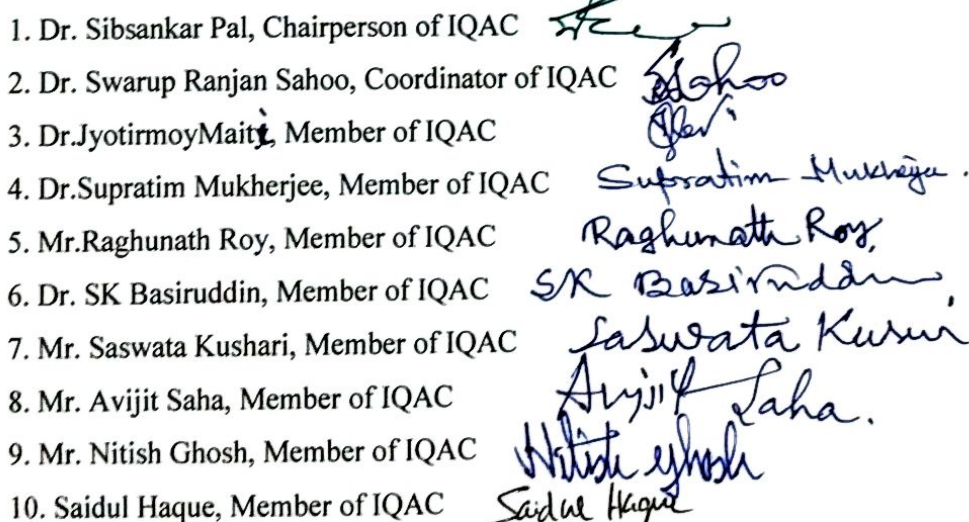 1. Dr. Sibsankar Pal, Chairperson of IQAC
2. Dr. Swarup Ranjan Sahoo, Coordinator of IQAC Sahoo
3. Dr.JyotirmoyMaiti, Member of IQAC
4. Dr.Supratim Mukherjee, Member of IQAC Supratim Mukherjee.
5. Mr.Raghunath Roy, Member of IQAC Raghunath Roy.
6. Dr. SK Basiruddin, Member of IQAC SK Basiruddin
7. Mr. Saswata Kushari, Member of IQAC Saswata
8. Mr. Avijit Saha, Member of IQAC Avijit Saha.
9. Mr. Nitish Ghosh, Member of IQAC Nitish Ghosh
10. Saidul Haque, Member of IQAC Saidul Haque